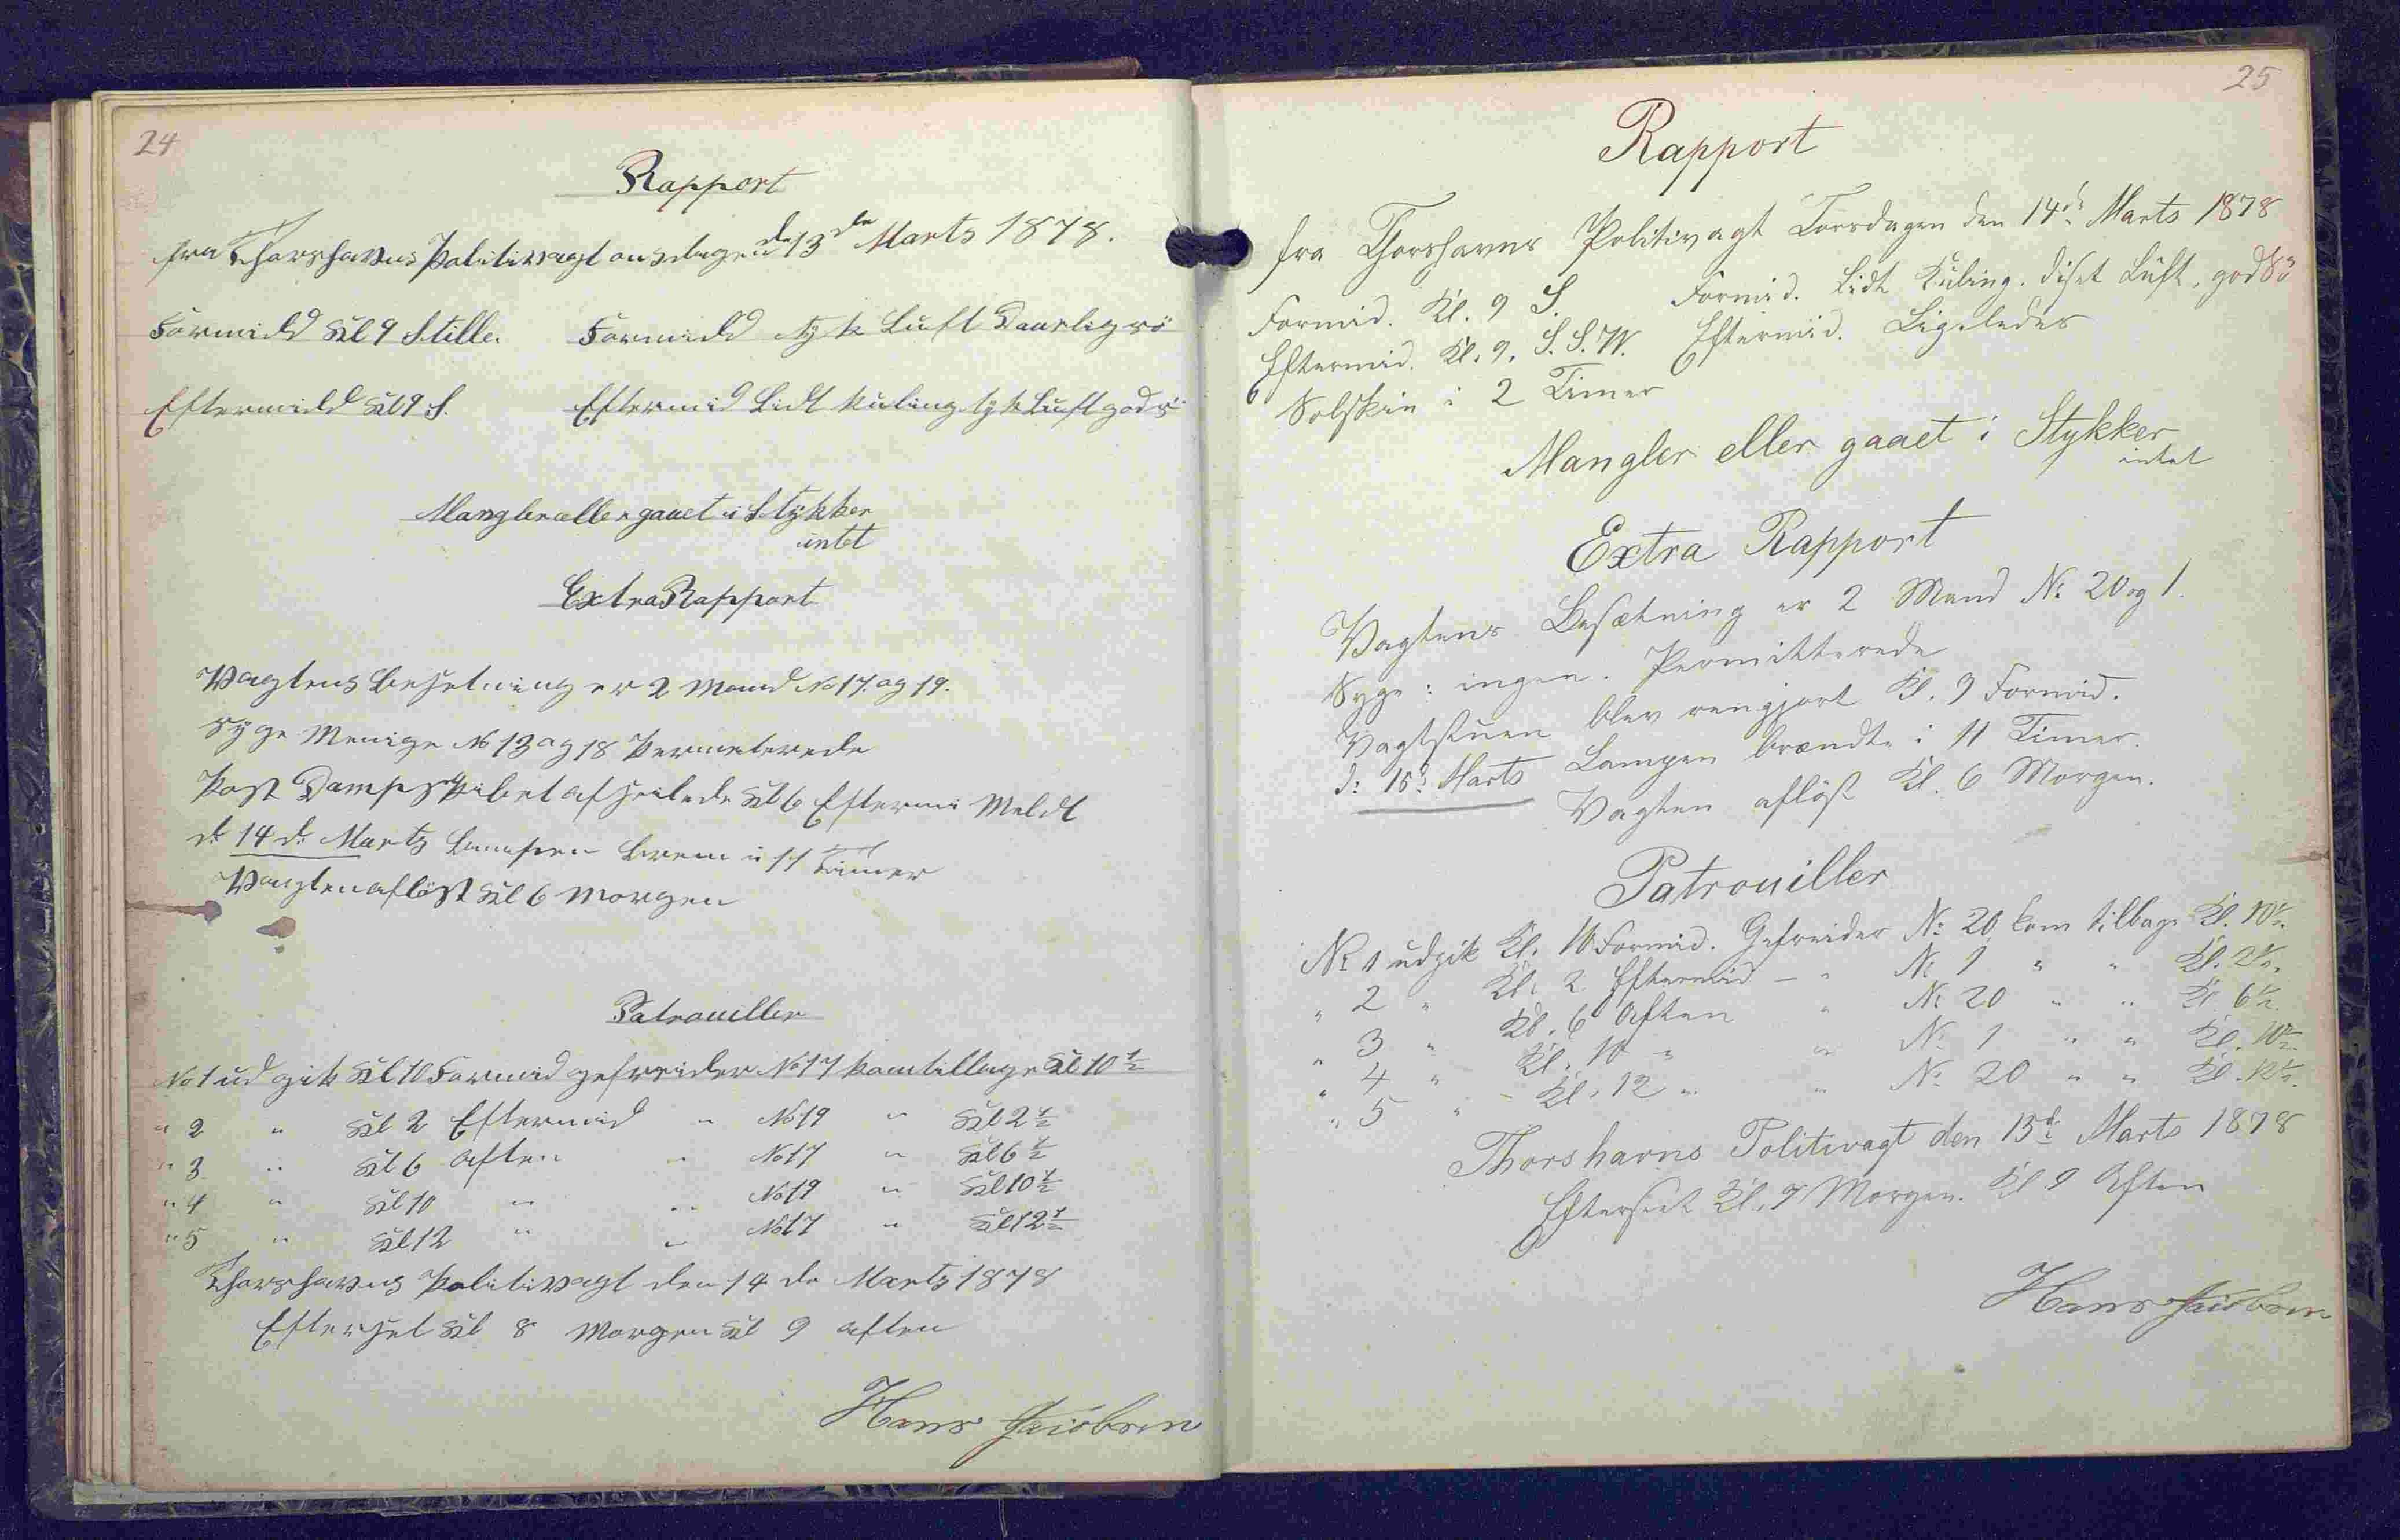 24
Rapport
fra Thorshavns Politivagt onsdagen d 13de Marts 1878.
Formidd Kl 9 Stille. Formidd tyk Luft Daarlig sö
Eftermidd Kl 9 S. Eftermid Lidt kuling tyk Luft god sö
Mangler eller gaaet i Stykker
intet
Extra Rapport
Vagtens Besetning er 2 Mand No 17. og 19.
Syge Menige No 13 og 18 Permeterede
Post Dampskibet afseilede Kl 6 Eftermi Meldt
d: 14 d: Marts Lampen brem i 11 Timer
Vagten aflöst Kl 6 Morgen
Patrouiller
No 1 ud gik Kl 10 Formid gefreider No 17 kom tillage Kl 10 1/2
" 2 " Kl 2 Eftermid " No 19 " Kl 2 1/2
" 3 " Kl 6 Aften " No 17 " Kl 6 1/2
" 4 " Kl 10 " " No 19 " Kl 10 1/2
" 5 " Kl 12 " " No 17 " Kl 12 1/2
Thorshavns Politivagt den 14 de Marts 1878
Efterset Kl 8 Morgen Kl 9 aften
Hans Jacobsen
25
Rapport
fra Thorshavns Politivagt Torsdagen den 14de Marts 1878
Formid. Kl. 9 S. Formid. Lidt Kuling. diset Luft, god Sö
Eftermid. Kl. 9. S.S.W. Eftermid. Ligeledes
Solskin i 2 Timer
Mangler eller gaaet i Stykker
intet
Extra Rapport
Vagtens Besætning er 2 Mand No 20 og 1.
Syge: ingen. Permitterede
Vagtstuen blev rengjort Kl. 9 Formid.
d: 15d Marts Lampen brændte i 11 Timer.
Vagten aflöst Kl. 6 Morgen.
Patrouiller
No 1 udgik Kl. 10 Formid. Gefreider No 20 kom tilbage Kl. 10 1/2.
" 2 " Kl. 2 Eftermid - " No 1 " " Kl. 2 1/2.
" 3 " Kl. 6 Aften " No 20 " " Kl 6 1/2.
" 4 " Kl. 10 " " No 1 " " Kl. 10 1/2.
" 5 " Kl. 12 " " No 20 " " Kl. 12 1/2.
Thorshavns Politivagt den 15de Marts 1878
Efterset Kl. 9 Morgen. Kl 9 Aften
Hans Jacobsen